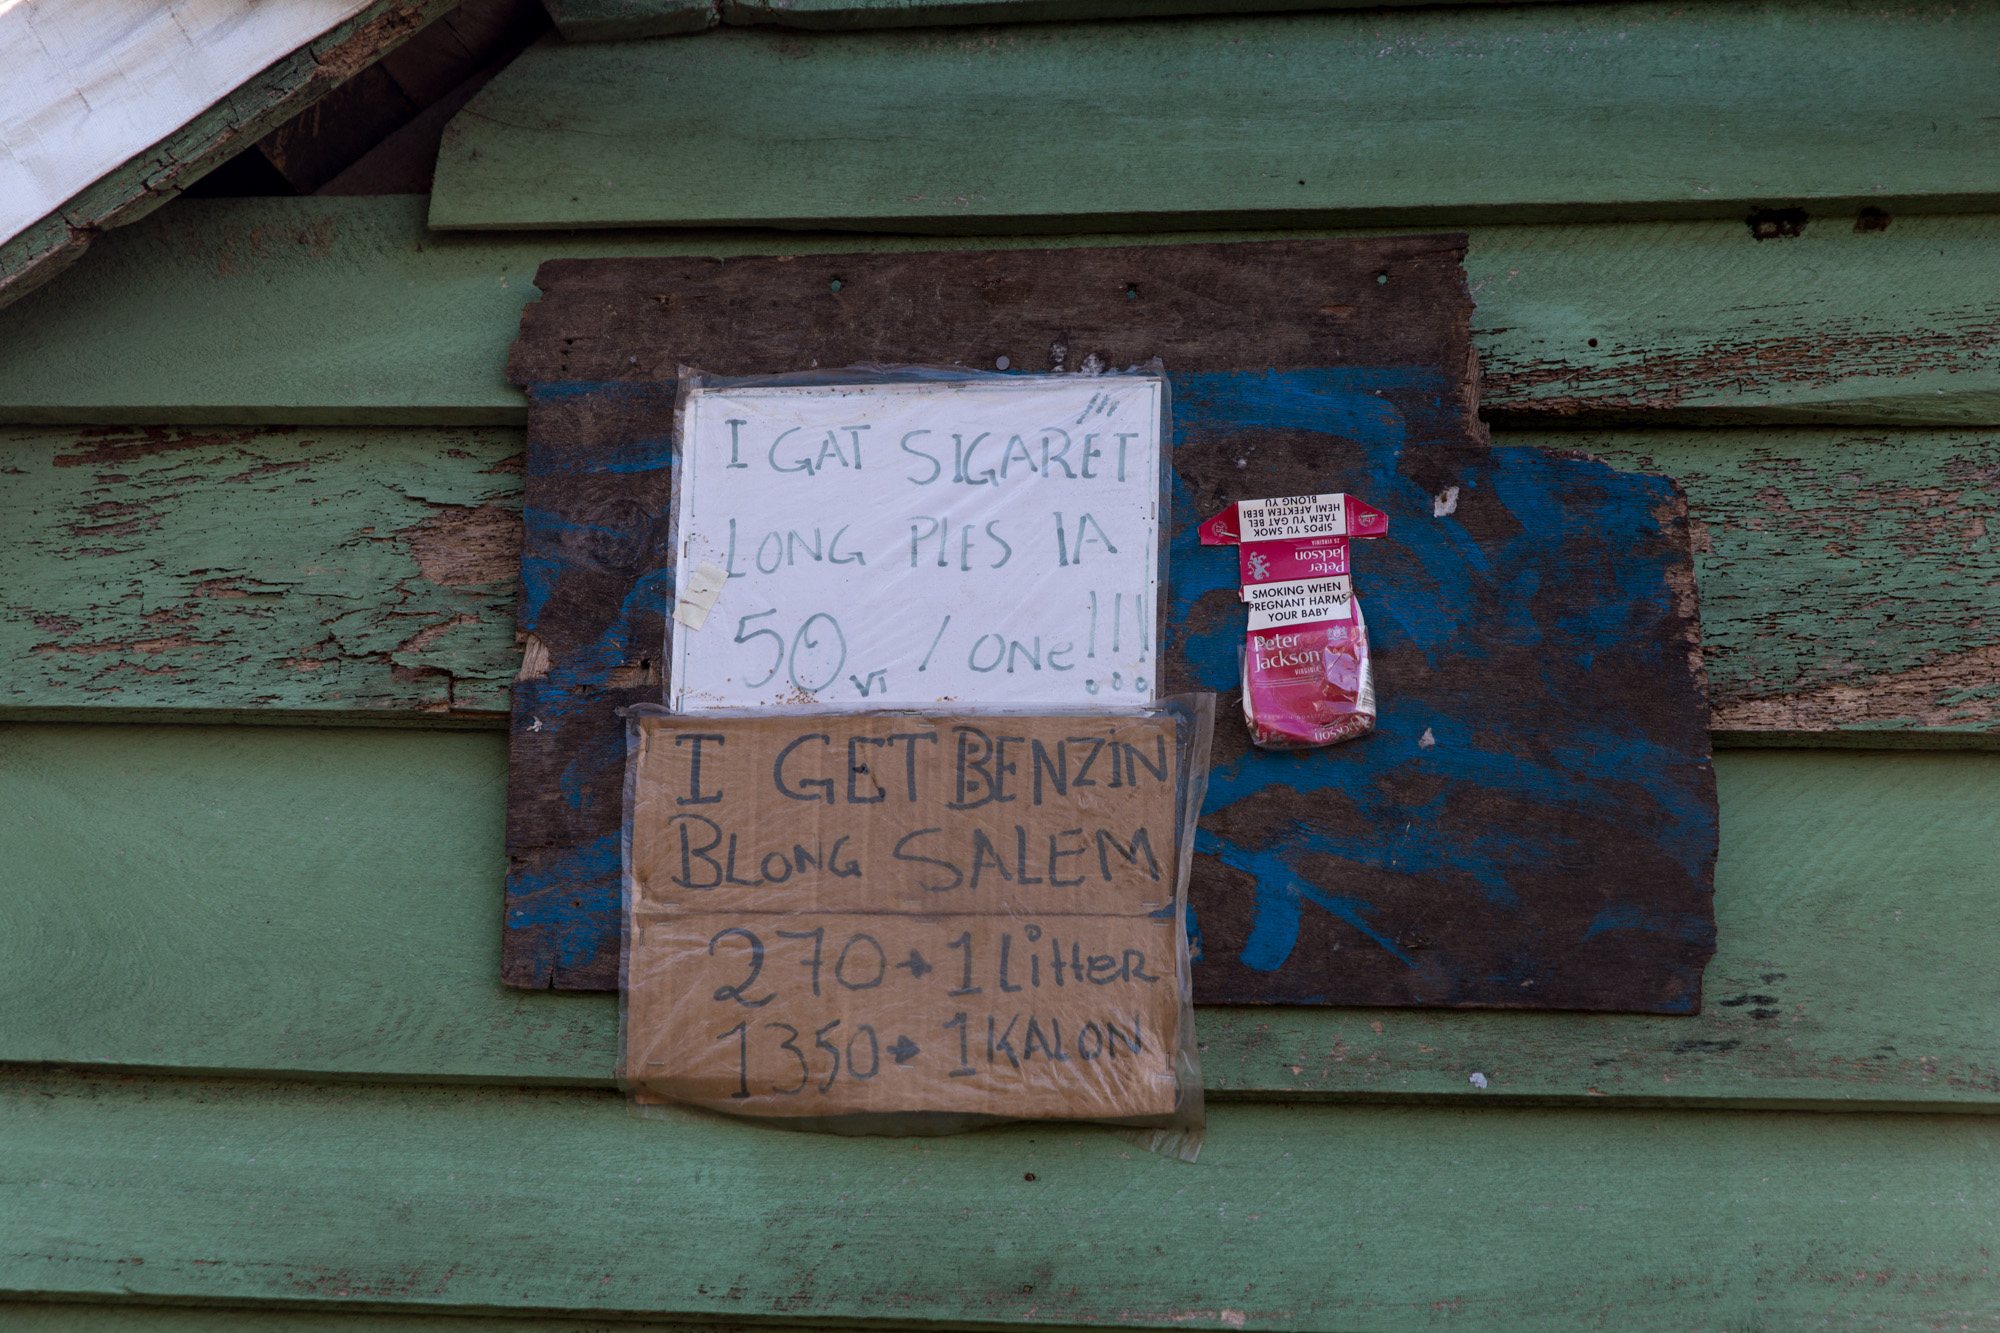 I GAT SIGARET !!!
LONG PLES IA
50 VT / ONE!!!
I GET BENZIN
BLONG SALEM
270 → 1 LitteR
1350 → 1 KALON
SIPOS YU SMOK
TAEM YU GAT BEL
HEMI AFEKTEM BEBI
BLONG YU
Peter
Jackson
25 VIRGINIA
SMOKING WHEN
PREGNANT HARMS
YOUR BABY
Peter
Jackson
VIRGINIA